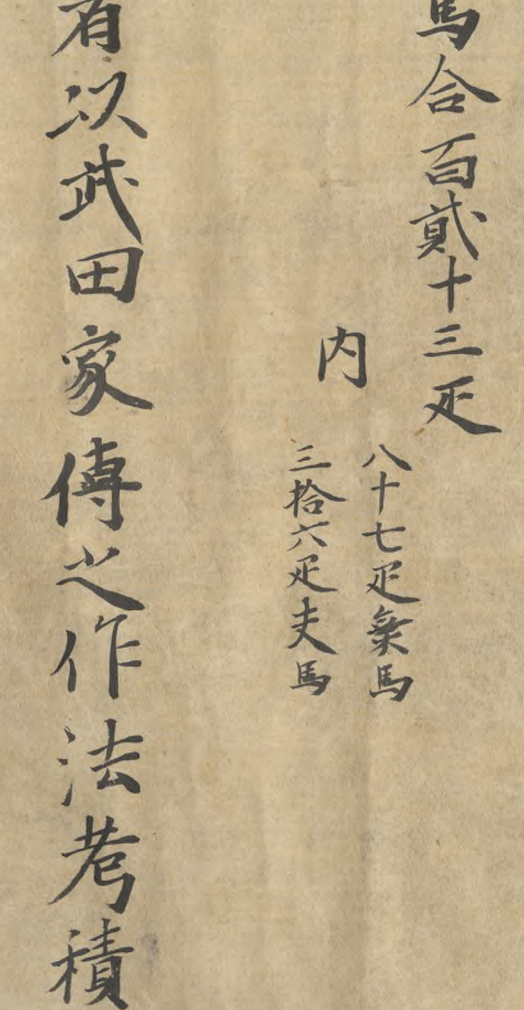 馬合百貳十三疋
内
八十七疋乗馬
三拾六疋夫馬
有以武田家傳之作法考積